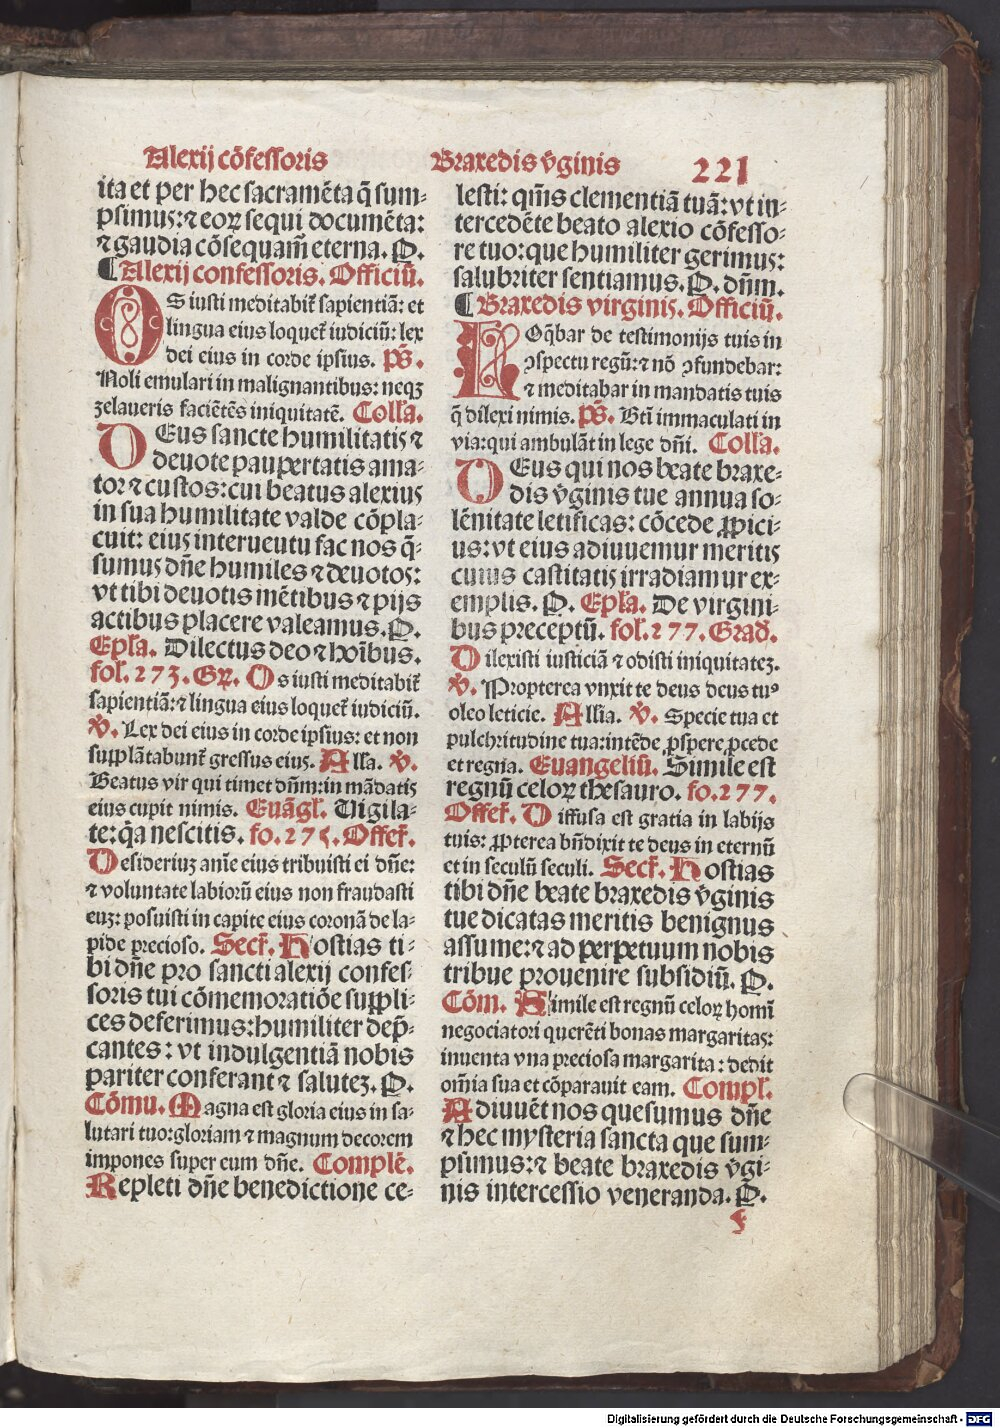 Alexij cōfessoris
Braxedis v̄ginis
221
ita et per hec sacramēta q̄ sum⸗
psimus: ⁊ eoꝝ sequi documēta:
⁊ gaudia cōsequam̄ eterna. P.
¶ Alexij confessoris. Officiū.
OS iusti meditabit̄ sapientiā: et
lingua eius loquet̄ iudiciū: lex
dei eius in corde ipsius. p̄s.
Noli emulari in malignantibus: neqꝫ
zelaueris faciētēs iniquitatē. Coll'a.
DEus sancte humilitatis ⁊
deuote paupertatis ama⸗
tor ⁊ custos: cui beatus alexius
in sua humilitate valde cōpla⸗
cuit: eius interuentu fac nos q̄⸗
sumus dn̄e humiles ⁊ deuotos:
vt tibi deuotis mētibus ⁊ pijs
actibus placere valeamus. P.
Ep̄la. Dilectus deo ⁊ hoībus.
fol. 273. Gꝝ. Os iusti meditabit̄
sapientiā: ⁊ lingua eius loquet̄ iudiciū.
v̄. Lex dei eius in corde ipsius: et non
supplātabunt̄ gressus eius. All'a. v̄.
Beatus vir qui timet dn̄m: in mādatis
eius cupit nimis. Euāgl'. Vigila⸗
te: q̄a nescitis. fo. 275. Offer̄.
Desideriuz anīe eius tribuisti ei dn̄e:
⁊ voluntate labiorū eius non fraudasti
euz: posuisti in capite eius coronā de la⸗
pide precioso. Secr̄. Hostias ti⸗
bi dn̄e pro sancti alexij confes⸗
soris tui cōmemoratiōe suppli⸗
ces deferimus: humiliter dep̄⸗
cantes: vt indulgentiā nobis
pariter conferant ⁊ salutez. P.
Cōmu. Magna est gloria eius in sa⸗
lutari tuo: gloriam ⁊ magnum decorem
impones super eum dn̄e. Complē.
Repleti dn̄e benedictione ce⸗
lesti: qm̄s clementiā tuā: vt in⸗
tercedēte beato alexio cōfesso⸗
re tuo: que humiliter gerimus:
salubriter sentiamus. P. dn̄m.
¶ Braxedis virginis. Officiū.
LOq̄bar de testimonijs tuis in
ꝯspectu regū: ⁊ nō ꝯfundebar:
⁊ meditabar in mandatis tuis
q̄ dilexi nimis. p̄s. Bt̄i immaculati in
via: qui ambulāt in lege dn̄i. Coll'a.
DEus qui nos beate braxe⸗
dis v̄ginis tue annua so⸗
lēnitate letificas: cōcede ꝓpici⸗
us: vt eius adiuuemur meritis
cuius castitatis irradiamur ex⸗
emplis. P. Ep̄la. De virgini⸗
bus preceptū. fol. 277. Grad̄.
Dilexisti iusticiā ⁊ odisti iniquitatez.
v̄. Propterea vnxit te deus deus tuꝰ
oleo leticie. All'ia. v̄. Specie tua et
pulchritudine tua: intēde, ꝓspere ꝓcede
et regna. Euangeliū. Simile est
regnū celoꝝ thesauro. fo. 277.
Offer̄. Diffusa est gratia in labijs
tuis: ꝓpterea bn̄dixit te deus in eternū
et in seculū seculi. Secr̄. Hostias
tibi dn̄e beate braxedis v̄ginis
tue dicatas meritis benignus
assume: ⁊ ad perpetuum nobis
tribue prouenire subsidiū. P.
Cōm. Simile est regnū celoꝝ homī
negociatori querēti bonas margaritas:
inuenta vna preciosa margarita: dedit
om̄ia sua et cōparauit eam. Compl'.
Adiuuēt nos quesumus dn̄e
⁊ hec mysteria sancta que sum⸗
psimus: ⁊ beate braxedis v̄gi⸗
nis intercessio veneranda. P.
Digitalisierung gefördert durch die Deutsche Forschungsgemeinschaft - DFG